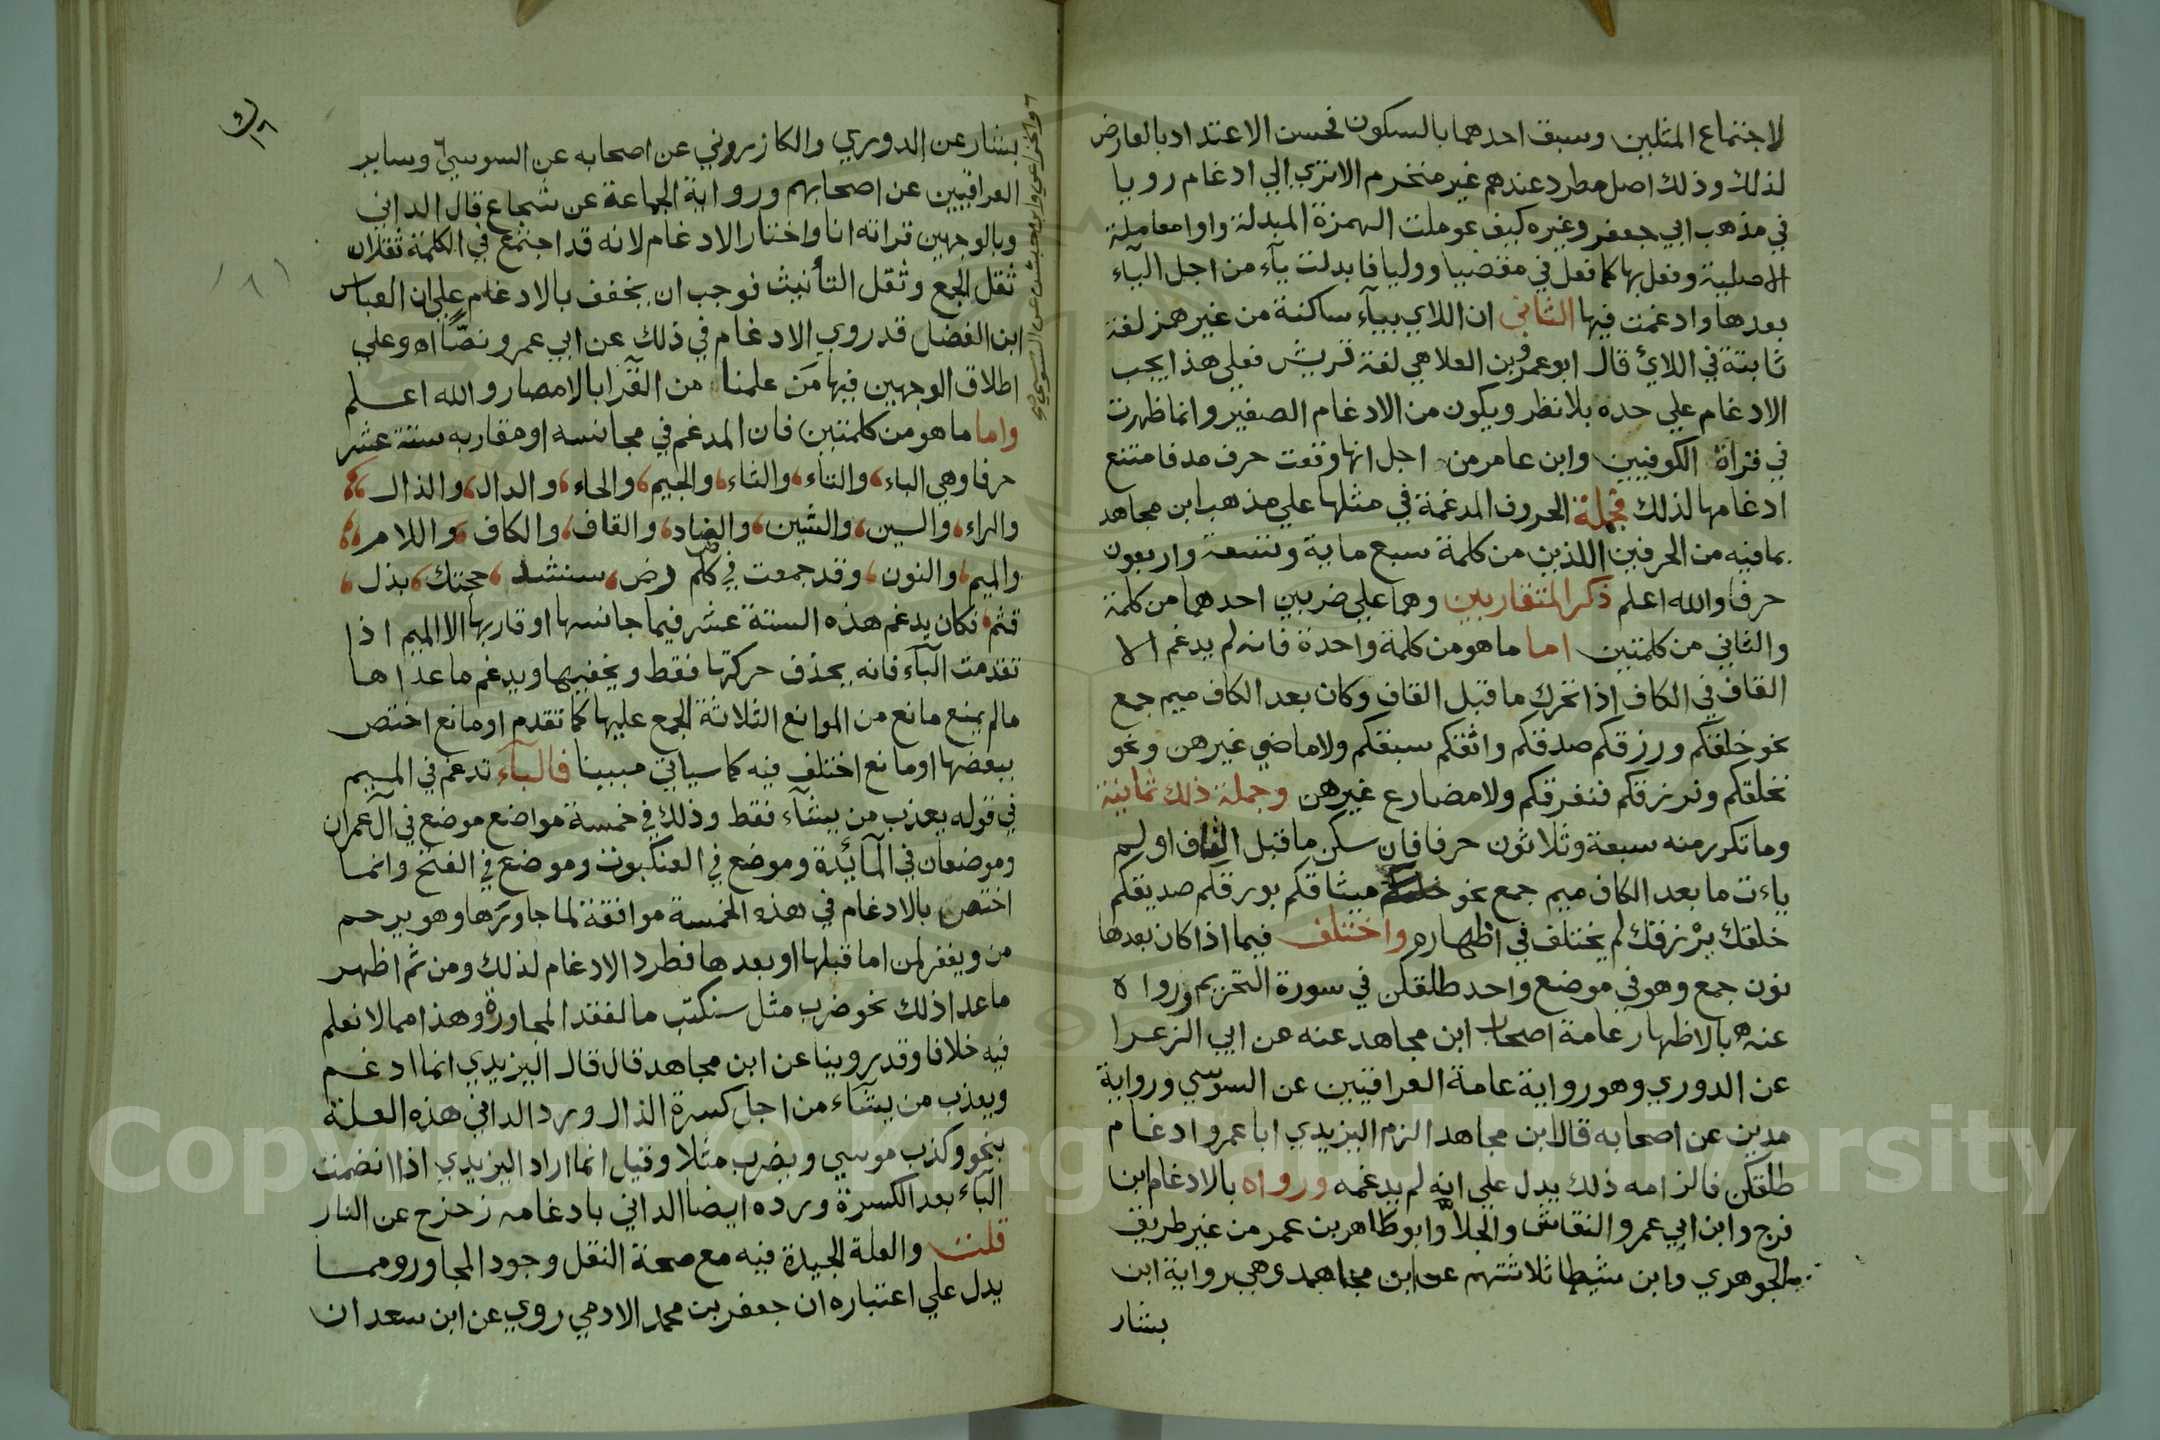 لاجتماع المثلين وسبق احدهما بالسكون فحسن الاعتداد بالعارض
لذلك وذلك اصل مطرد عندهم غير منخرم الاتري الي ادغام رويا
في مذهب ابي جعفر وغيره كيف عوملت الهمزة المبدلة واوا معاملة
الاصلية وفعل بها كما فعل في مقضيا ووليا فابدلت يآء من اجل اليآء
بعدها وادغمت فيها الثاني ان اللاي بيآء ساكنة من غير همز لغة
ثابتة في اللائ قال ابو عمرو بن العلا هي لغة قريش فعلي هذا يجب
الادغام علي حده بلا نظر ويكون من الادغام الصغير وانما ظهرت
في قرآة الكوفيين وابن عامر من اجل انها وقعت حرف مد فامتنع
ادغامها لذلك فجملة الحروف المدغمة في مثلها علي مذهب ابن مجاهد
بما فيه من الحرفين اللذين من كلمة سبع ماية وتسعة واربعون
حرفا والله اعلم ذكر المتقاربين وهما علي ضربين احدهما من كلمة
والثاني من كلمتين اما ما هو من كلمة واحدة فانه لم يدغم الا
القاف في الكاف اذا تحرك ما قبل القاف وكان بعد الكاف ميم جمع
نحو خلقكم ورزقكم صدقكم واثقكم سبقكم ولا ماضي غيرهن ونحو
نخلقكم ونرزقكم فنغرقكم ولا مضارع غيرهن وجملة ذلك ثمانية
وما تكرر منه سبعة وثلاثون حرفا فان سكن ما قبل القاف او لم
ياءت ما بعد الكاف ميم جمع نحو ميثاقكم بورقكم صديقكم
خلقك يرْزقك لم يختلف في اظهاره واختلف فيما اذا كان بعدها
نون جمع وهو في موضع واحد طلقكن في سورة التحريم ورواه
عنه بالاظهار عامة اصحاب ابن مجاهد عنه عن ابي الزعرا
عن الدوري وهو رواية عامة العراقيين عن السوسي ورواية
مدين عن اصحابه قال ابن مجاهد الزم اليزيدي ابا عمرو ادغام
طلقكن فالزامه ذلك يدل علي انه لم يدغمه ورواه بالادغام ابن
فرج وابن ابي عمرو النقاش والجلاّ وابو طاهر بن عمر من غير طريق
الجوهري وابن شيطا ثلاثتهم عن ابن مجاهد وهي رواية ابن
بشار
بشار عن الدوري والكازروني عن اصحابه عن السوسي وساير
العراقيين عن اصحابهم ورواية الجماعة عن شجاع قال الداني
وبالوجهين قراته انا واختار الادغام لانه قد اجتمع في الكلمة ثقلان
ثقل الجمع وثقل التأنيث فوجب ان يخفف بالادغام علي ان العباس
ابن الفضل قد روي الادغام في ذلك عن ابي عمرو نصّاً اه وعلي
اطلاق الوجهين فيها مَن علمنا من القرّا بالامصار والله اعلم
واما ما هو من كلمتين فان المدغم في مجانسه او مقاربه ستة عشر
حرفا وهي الباء، والتاء، والثاء، والجيم، والحاء، والدال، والذال،
والراء، والسين، والشين، والضاد، والقاف، والكاف، واللام،
والميم، والنون، وقد جمعت في كلم رض، سنشد، حجتك، بذل،
قثم، فكان يدغم هذه الستة عشر فيما جانسها او قاربها الا الميم اذا
تقدمت البآء فانه يحذف حركتها فقط ويخفيها ويدغم ما عداها
مالم يمنع مانع من الموانع الثلاثة المجمع عليها كما تقدم او مانع اختص
ببعضها او مانع اختلف فيه كما سياتي مبينا فالبآء تدغم في الميم
في قوله يعذب من يشآء فقط وذلك في خمسة مواضع موضع في آل عمران
وموضعان في المآئدة وموضع في العنكبوت وموضع في الفتح وانما
اختص بالادغام في هذه الخمسة موافقة لما جاورَها وهو يرحم
من ويغفر لمن اما قبلها او بعدها فطرد الادغام لذلك ومن ثم اظهر
ما عدا ذلك نحو ضرب مثل سنكتب ما لفقد المجاورة وهذا مما لا نعلم
فيه خلافا وقد روينا عن ابن مجاهد قال قال اليزيدي انما ادغم
ويعذب من يشآء من اجل كسرة الذال ورد الداني هذه العلة
بنحو وكذب موسي ويضرب مثلا وقيل انما اراد اليزيدي اذا انضمت
البآء بعد الكسرة ورده ايضا الداني بادغامه زحزح عن النار
قلت والعلة الجيدة فيه مع صحة النقل وجود المجاور ومما
يدل علي اعتباره ان جعفر بن محمد الادمي روي عن ابن سعدان
Copyright © King Saud University